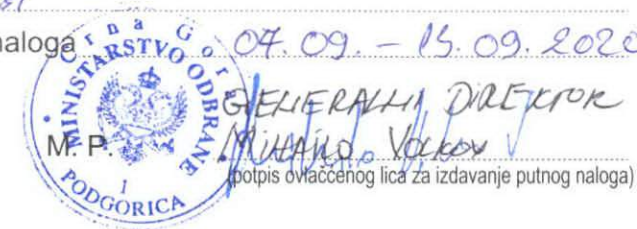 naloga 07.09. – 15.09. 2020
Crna Gora
MINISTARSTVO ODBRANE
1
PODGORICA
GENERALNI DIREKTOR
M. P. Mihailo Volkov
(potpis ovlaćcenog lica za izdavanje putnog naloga)